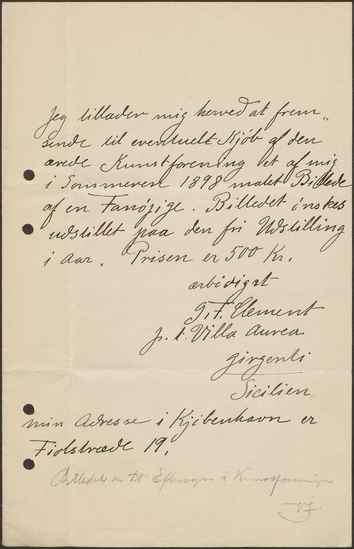 Jeg tillader mig herved at frem„
sende til eventuelt Kjöb af den
ærede Kunstforening et af mig
i Sommeren 1898 malet Billede
af en Fanøpige. Billedet önskes
udstillet paa den fri Udstilling
i Aar. Prisen er 500 Kr.
ærbödigst
G. F. Clement
p. t. Villa Aurea
Girgenti
Sicilien
min Adresse i Kjöbenhavn er
Fiolstræde 19.
Billedet er til Eftersyn i Kunstforeningen